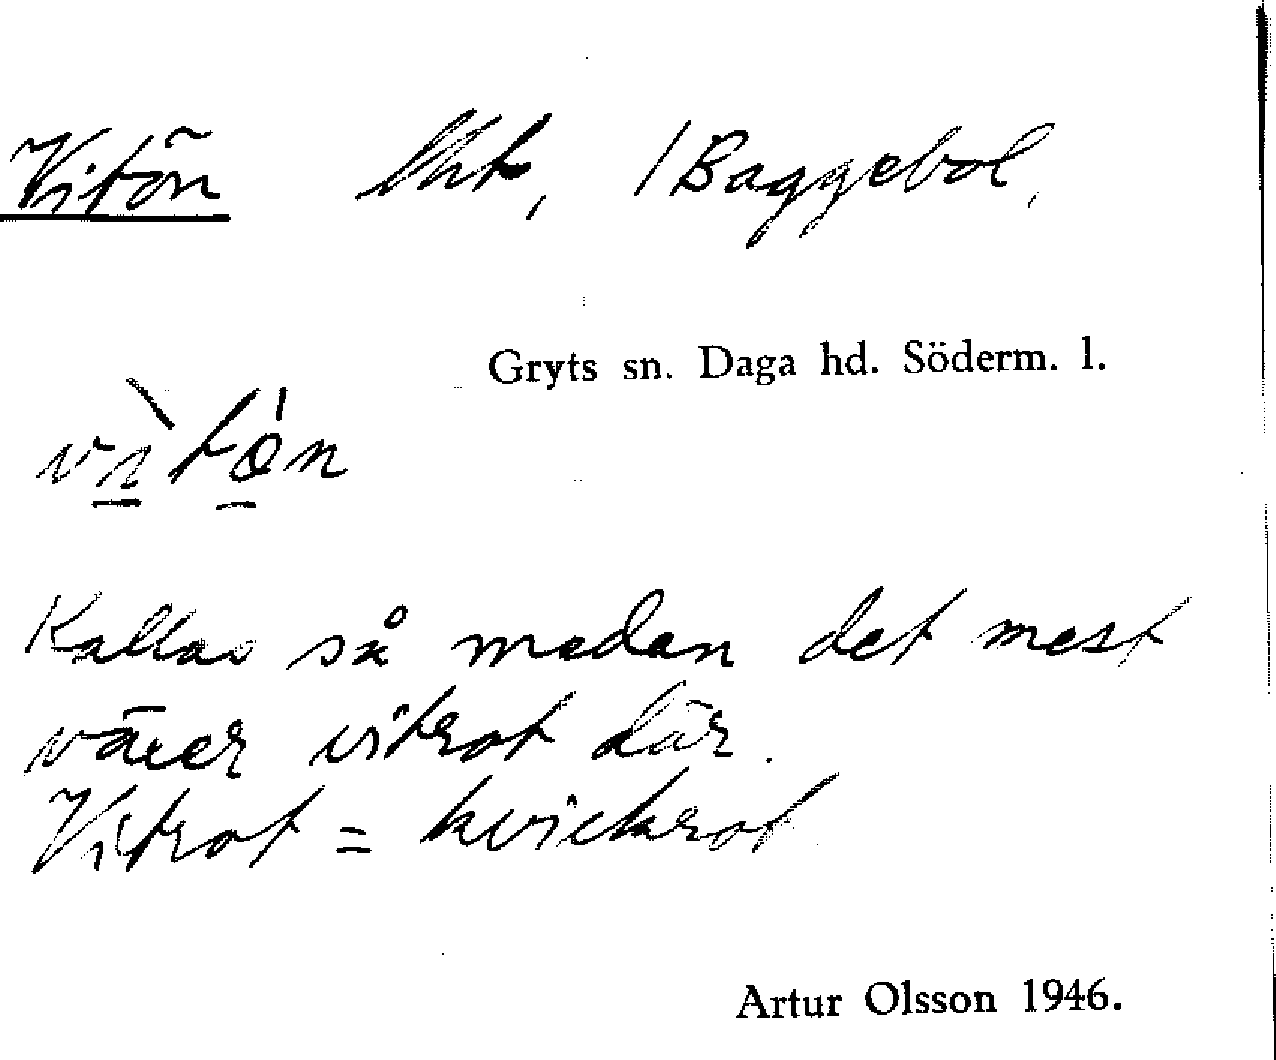 Vitön Åkt, 1 Baggebol,
Gryts sn. Daga hd. Söderm. l.
vìtón
Kallas så medan det mest
växer vitrot där.
Vitrot = kvickrot
Artur Olsson 1946.